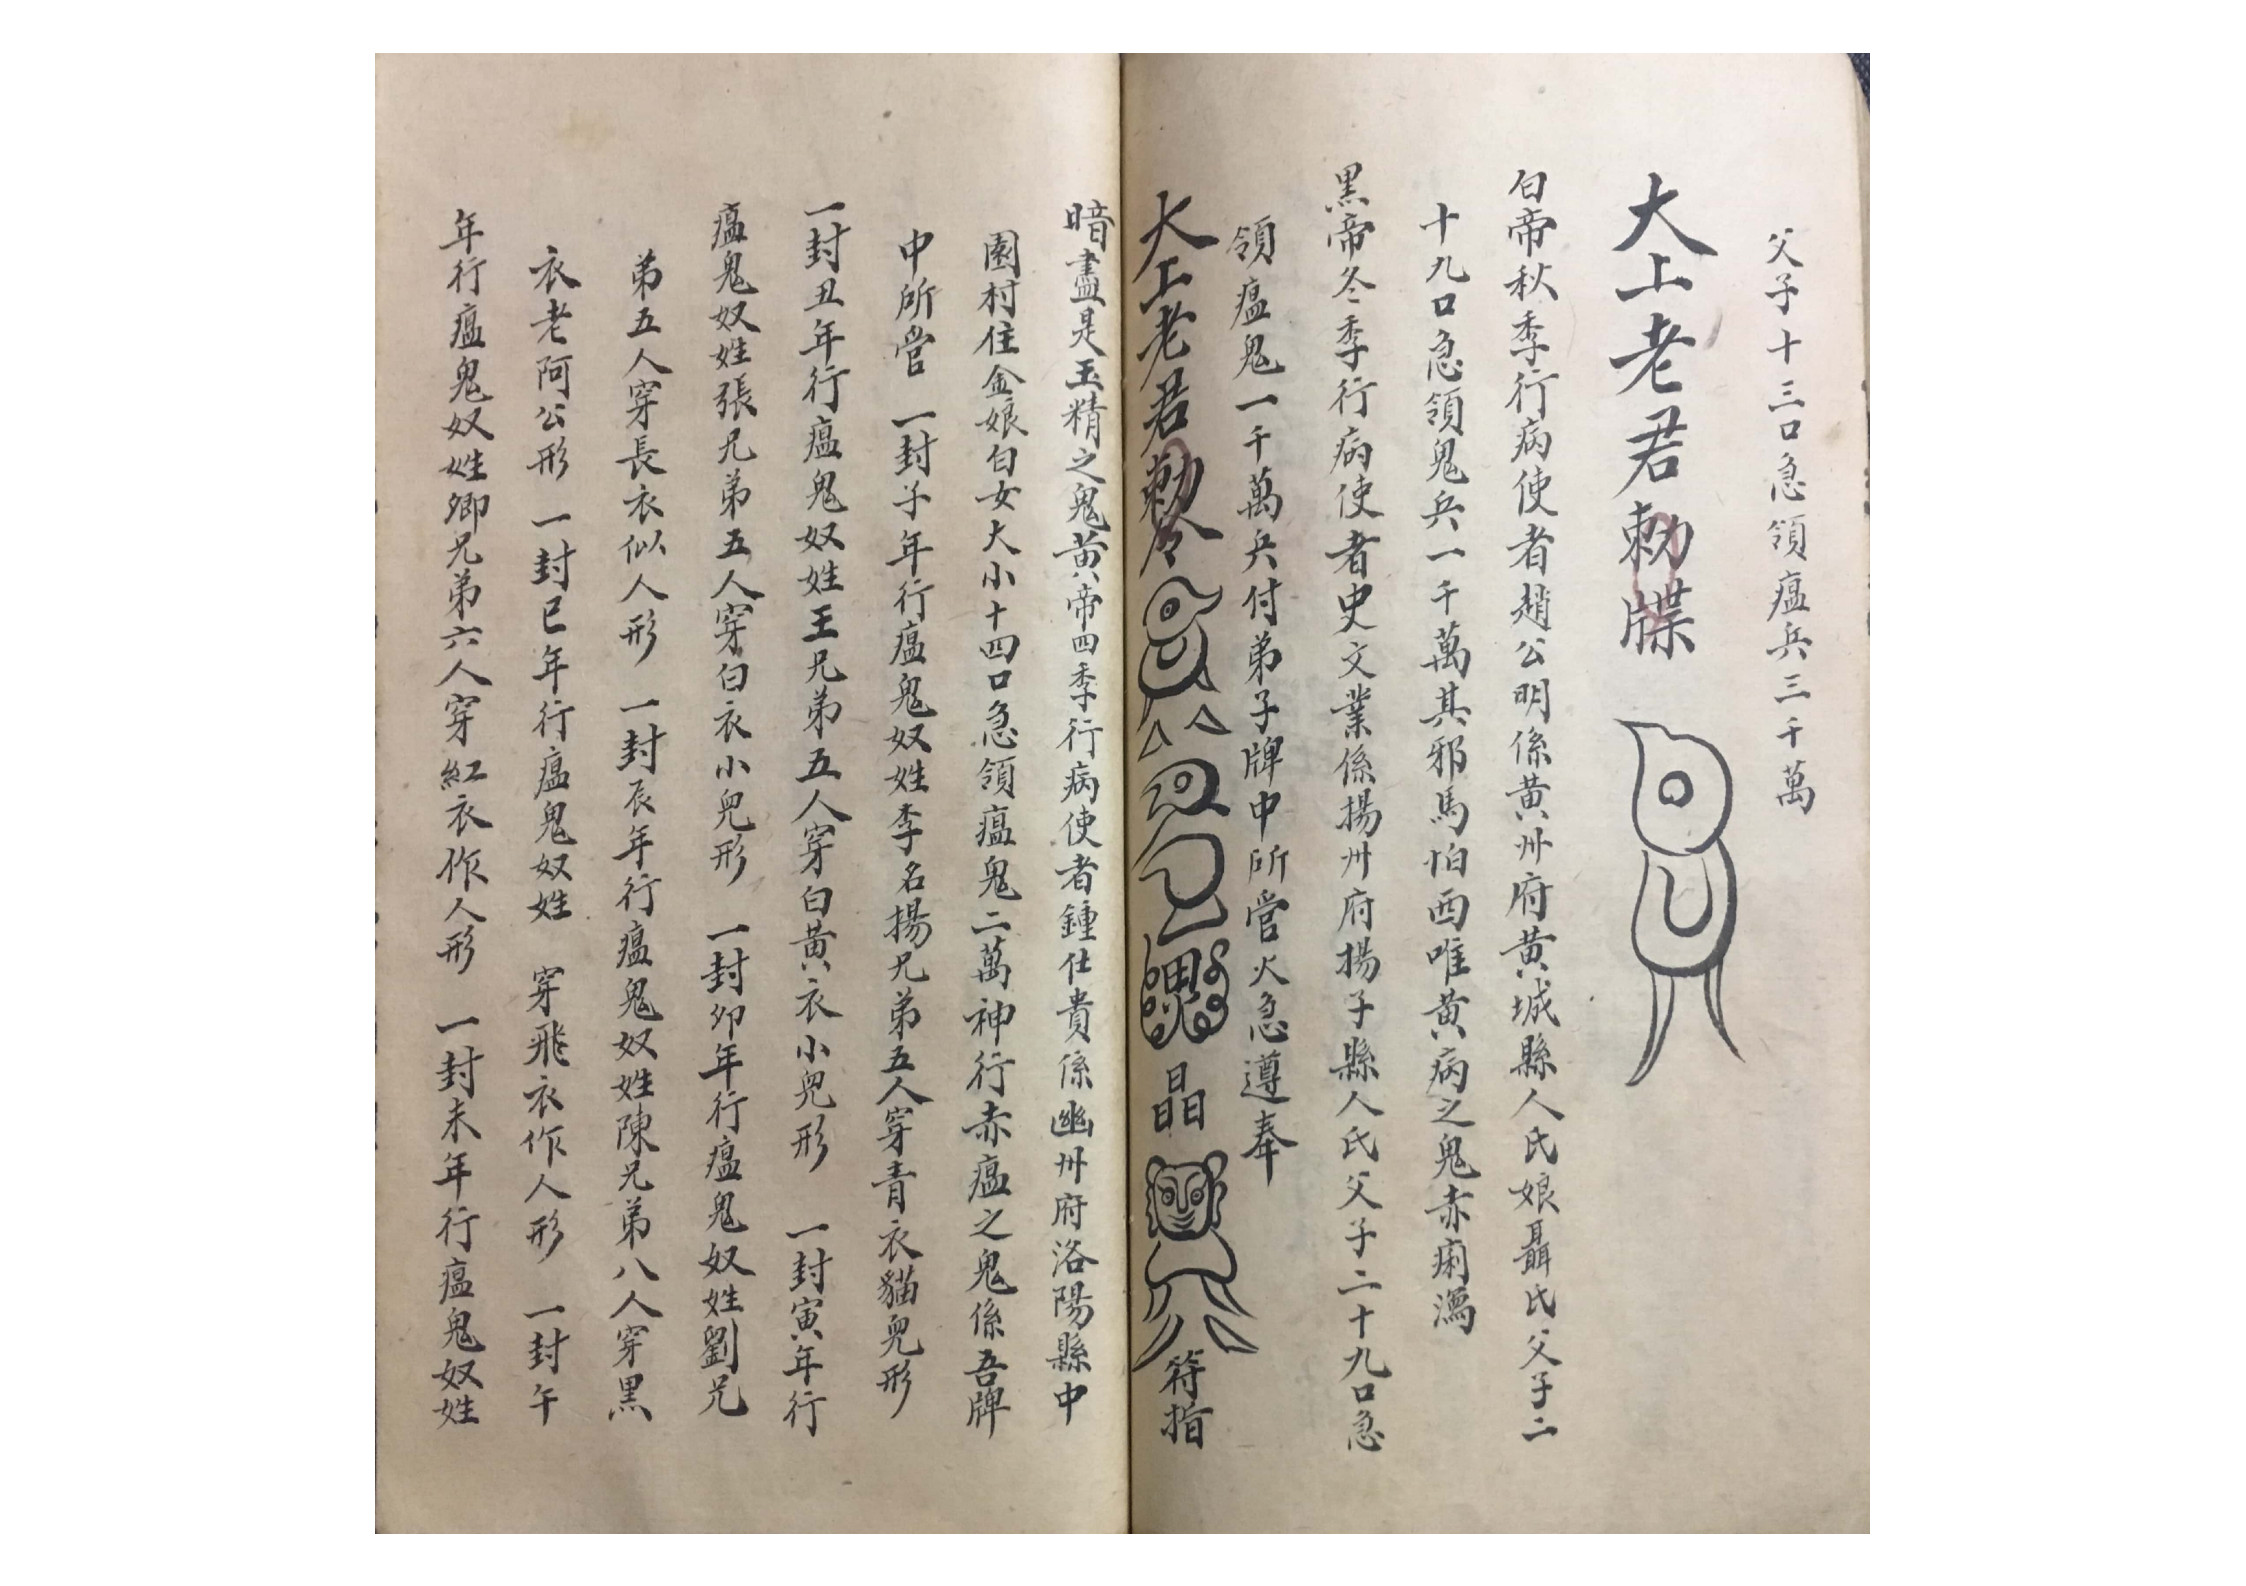 父子十三口急領瘟兵三千萬
大上老君勅牒
白帝秋季行病使者趙公明係黃州府黃城縣人氏娘聶氏父子二
十九口急領鬼兵一千萬其邪馬怕西唯黃病之鬼赤痢瀉
黑帝冬季行病使者史文業係揚州府揚子縣人氏父子二十九口急
領瘟鬼一千萬兵付弟子牌中所管火急遵奉
大上老君勅令 晶 符指
暗盡是玉精之鬼黃帝四季行病使者鍾仕貴係幽州府洛陽縣中
園村住金娘白女大小十四口急領瘟鬼二萬神行赤瘟之鬼係吾牌
中所管 一封子年行瘟鬼奴姓李名揚兄弟五人穿青衣貓兒形
一封丑年行瘟鬼奴姓王兄弟五人穿白黃衣小兒形 一封寅年行
瘟鬼奴姓張兄弟五人穿白衣小兒形 一封卯年行瘟鬼奴姓劉兄
弟五人穿長衣似人形 一封辰年行瘟鬼奴姓陳兄弟八人穿黑
衣老阿公形 一封巳年行瘟鬼奴姓 穿飛衣作人形 一封午
年行瘟鬼奴姓卿兄弟六人穿紅衣作人形 一封未年行瘟鬼奴姓